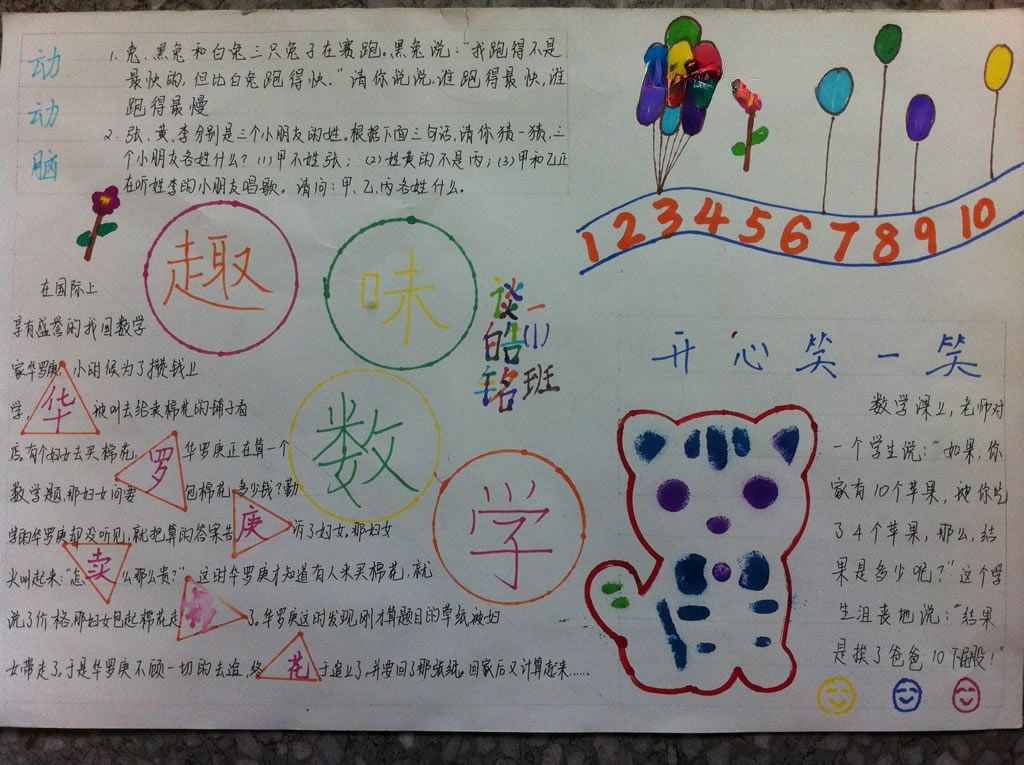 动动脑
1. 兔、黑兔和白兔三只兔子在赛跑。黑兔说:“我跑得不是
最快的,但比白兔跑得快。”请你说说,谁跑得最快,谁
跑得最慢
2. 张、黄、李分别是三个小朋友的姓。根据下面三句话,请你猜一猜,三
个小朋友各姓什么?(1)甲不姓张;(2)姓黄的不是丙;(3)甲和乙正
在听姓李的小朋友唱歌。请问:甲、乙、丙各姓什么。
1 2 3 4 5 6 7 8 9 10
趣味数学
谈皓铭
一(1)班
在国际上
享有盛誉的我国数学
家华罗庚,小时候为了攒钱上
学,被叫去给卖棉花的铺子看
店,有个妇女去买棉花,华罗庚正在算一个
数学题,那妇女问要包棉花多少钱?勤
学的华罗庚却没听见,就把算的答案告诉了妇女,那妇女
尖叫起来:“怎么那么贵?”,这时华罗庚才知道有人来买棉花,就
说了价格,那妇女包起棉花走了。华罗庚这时发现,刚才算题目的草纸被妇
女带走了,于是华罗庚不顾一切的去追,终于追上了,并要回了那张纸,回家后又计算起来……
华
罗
庚
卖
花
开心笑一笑
数学课上,老师对
一个学生说:“如果,你
家有10个苹果,被你吃
了4个苹果,那么,结
果是多少呢?”这个学
生沮丧地说:“结果
是挨了爸爸10下屁股!”